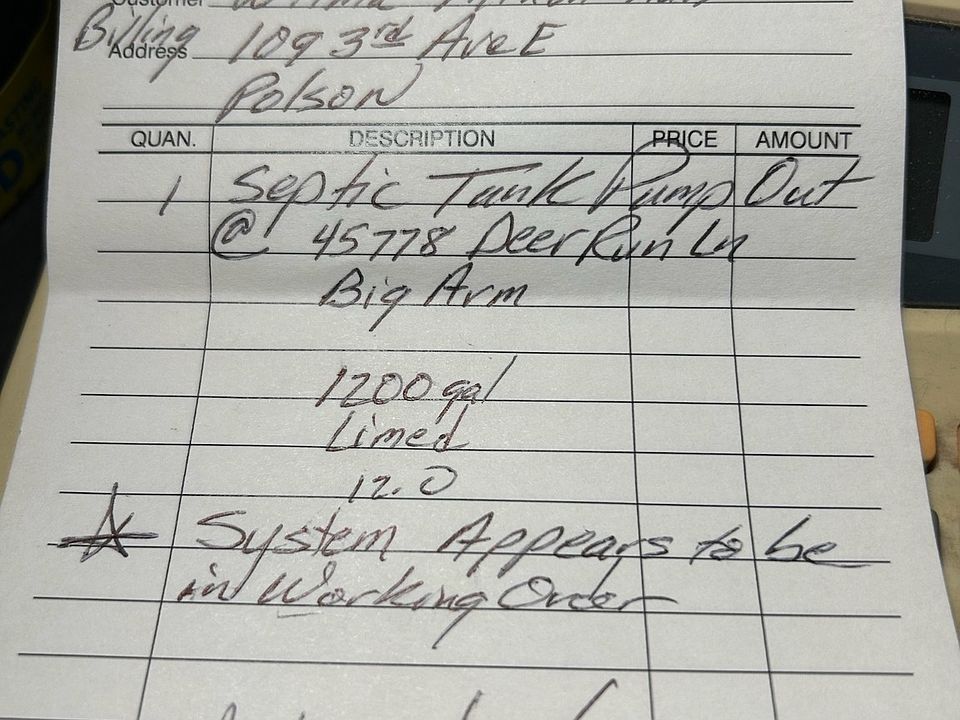 Customer
Billing Address 109 3rd Ave E
Polson
QUAN. DESCRIPTION PRICE AMOUNT
1 Septic Tank Pump Out
@ 45778 Deer Run Ln
Big Arm
1200 gal
Limed
12.0
☆ System Appears to be
in Working Order